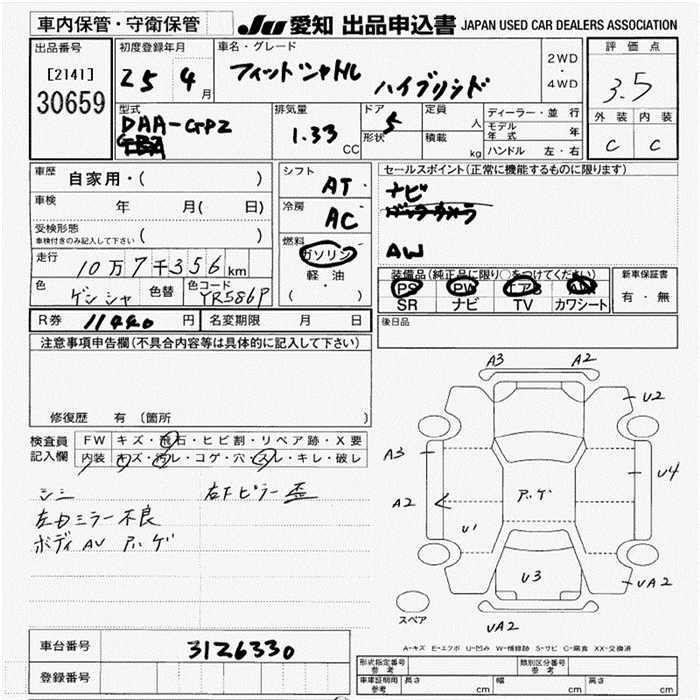 車内保管・守衛保管
JU 愛知 出品申込書 JAPAN USED CAR DEALERS ASSOCIATION
出品番号
[2141]
30659
初度登録年月
25 4月
車名・グレード
フィットシャトル ハイブリッド
2WD
・
4WD
評価点
3.5
外装 内装
C C
型式
DAA-GP2
排気量
1.33 CC
ドア
5
形状
定員
人
積載
kg
ディーラー・並行
モデル年式 年
ハンドル 左・右
車歴
自家用・( )
車検 年 月( 日)
受検形態
車検付きのみ記入して下さい ( )
走行
10万7千356km
色
ゲンシャ
色替
色コード
YR586P
シフト
AT
冷房
AC
燃料
ガソリン
軽油
( ・ )
セールスポイント(正常に機能するものに限ります)
ナビ
AW
装備品(純正品に限り○をつけてください)
PS PW エアB AW
SR ナビ TV カワシート
新車保証書
有・無
R券 11440円 名変期限 月 日
後日品
注意事項申告欄(不具合内容等は具体的に記入して下さい)
修復歴 有(箇所 )
検査員記入欄
FW キズ・飛石・ヒビ割・リペア跡・X要
内装 キズ・汚レ・コゲ・穴・スレ・キレ・破レ
シミ
右下ピラー歪
左ドミラー不良
A3 A2
U2
A3
U4
A2
U1
U3
UA2
UA2
スペア
A-キズ E-エクボ U-凹み W-補修跡 S-サビ C-腐食 XX-交換済
車台番号 3126330
登録番号
形式指定番号
参考
類別区分番号
参考
車庫証明用
参考
長さ cm 幅 cm 高さ cm